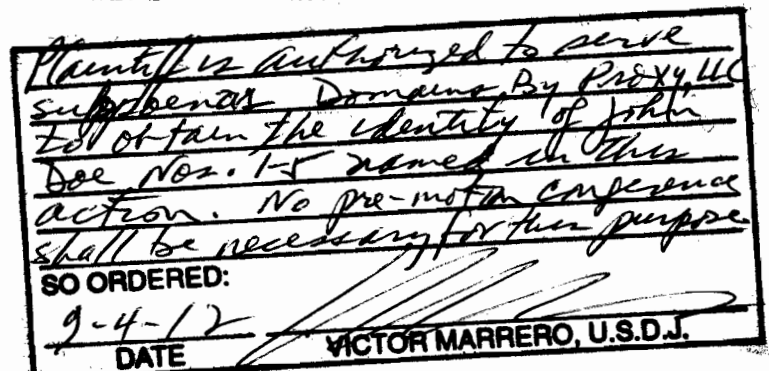 Plaintiff is authorized to serve
subpoenas Domains By Proxy, LLC
to obtain the identity of John
Doe Nos. 1-5 named in this
action. No pre-motion conference
shall be necessary for this purpose
SO ORDERED:
9-4-12
DATE VICTOR MARRERO, U.S.D.J.